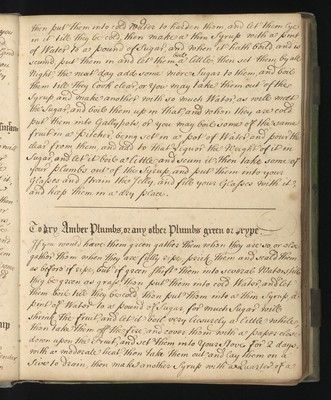 then put them into cold Water to harden them and let them lye
in it till they be cold, then make a thin Syrup with a pint
of Water to a pound of Sugar, and when it hath boild and is
scumd, put them in and let them boile a little, then set them by all
Night, the next day add some more Sugar to them, and boile
them till they look clear, or you may take them out of the
Syrup and make another with so much Water, as will melt
the Sugar, and boile them up in that, and when they are cold
put them into Gallypots, or you may boile some of the same
fruit in a Pitcher, being set in a pot of Water, and pour the
clear from them, and add to that Liquor the Weight of it in
Sugar, and let it boile a little and scum it, then take some of
your Plumbs out of the Syrup, and put them into your
Glasses and strain this Jelly, and fill your Glasses with it,
and keep them in a dry place.
To dry Amber Plumbs, or any other Plumbs green or rype
If you would have them green gather them when they are so, or else
gather them when they are fully ripe, prick them and scald them
as before if ripe, but if green shift them into severall Waters till
they be green as grass, than put them into cold Water, and let
them boil till they be cold, than put them into a thin Syrup, a
pint of Water to a pound of Sugar for much Sugar will
shrink the fruit, and let it boil very leasurely a little while,
than take them off the fire, and cover them with a paper close
down upon the fruit, and set them into your Stove for 2 days,
with a moderate heat, then take them out and lay them on a
Sive to drain, then make another Syrup with a Quarter of a